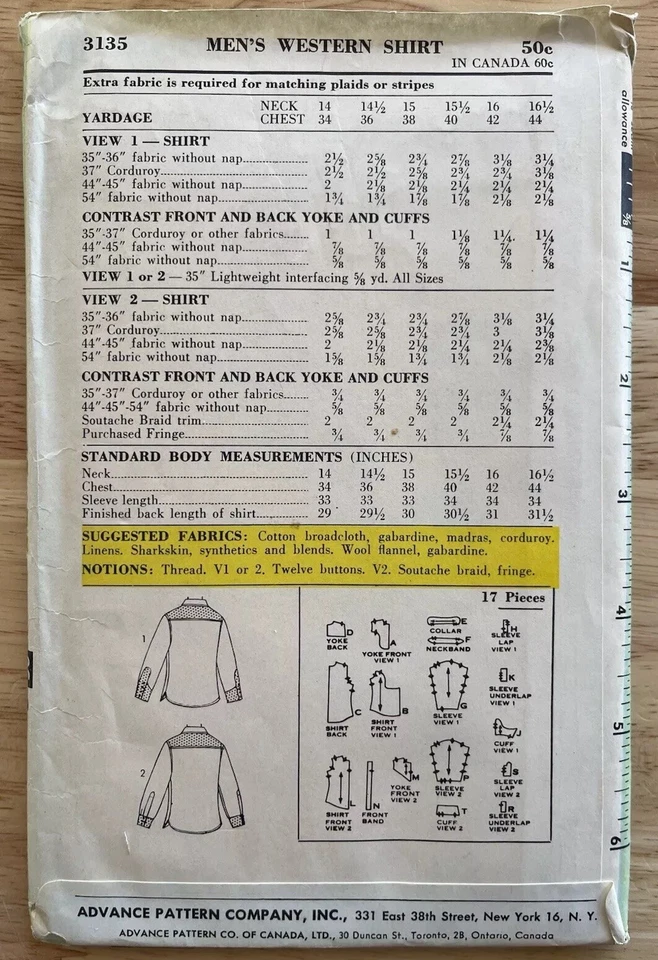 3135 MEN'S WESTERN SHIRT 50c
IN CANADA 60c
Extra fabric is required for matching plaids or stripes
NECK 14 14½ 15 15½ 16 16½
YARDAGE CHEST 34 36 38 40 42 44
VIEW 1 — SHIRT
35"-36" fabric without nap 2½ 2⅝ 2¾ 2⅞ 3⅛ 3¼
37" Corduroy 2½ 2½ 2⅝ 2¾ 2¾ 3⅛
44"-45" fabric without nap 2 2⅛ 2⅛ 2¼ 2¼ 2¼
54" fabric without nap 1¾ 1¾ 1⅞ 1⅞ 2⅛ 2⅛
CONTRAST FRONT AND BACK YOKE AND CUFFS
35"-37" Corduroy or other fabrics 1 1 1 1⅛ 1¼ 1¼
44"-45" fabric without nap ⅞ ⅞ ⅞ ⅞ ⅞ ⅞
54" fabric without nap ⅝ ⅝ ⅝ ⅝ ⅝ ⅝
VIEW 1 or 2 — 35" Lightweight interfacing ⅝ yd. All Sizes
VIEW 2 — SHIRT
35"-36" fabric without nap 2⅝ 2¾ 2¾ 2⅞ 3⅛ 3¼
37" Corduroy 2⅝ 2⅝ 2¾ 2¾ 3 3⅛
44"-45" fabric without nap 2 2⅛ 2⅛ 2¼ 2¼ 2⅜
54" fabric without nap 1⅝ 1⅝ 1¾ 1¾ 2⅛ 2⅛
CONTRAST FRONT AND BACK YOKE AND CUFFS
35"-37" Corduroy or other fabrics ¾ ¾ ¾ ¾ ¾ ¾
44"-45"-54" fabric without nap ⅝ ⅝ ⅝ ⅝ ⅝ ⅝
Soutache Braid trim 2 2 2 2 2¼ 2¼
Purchased Fringe ¾ ¾ ¾ ¾ ⅞ ⅞
STANDARD BODY MEASUREMENTS (INCHES)
Neck 14 14½ 15 15½ 16 16½
Chest 34 36 38 40 42 44
Sleeve length 33 33 33 34 34 34
Finished back length of shirt 29 29½ 30 30½ 31 31½
SUGGESTED FABRICS: Cotton broadcloth, gabardine, madras, corduroy.
Linens. Sharkskin, synthetics and blends. Wool flannel, gabardine.
NOTIONS: Thread. V1 or 2. Twelve buttons. V2. Soutache braid, fringe.
1
2
17 Pieces
D
YOKE
BACK
A
YOKE FRONT
VIEW 1
E
COLLAR
F
NECKBAND
H
SLEEVE
LAP
VIEW 1
C
SHIRT
BACK
B
SHIRT
FRONT
VIEW 1
G
SLEEVE
VIEW 1
K
SLEEVE
UNDERLAP
VIEW 1
J
CUFF
VIEW 1
L
SHIRT
FRONT
VIEW 2
N
FRONT
BAND
M
YOKE
FRONT
VIEW 2
P
SLEEVE
VIEW 2
T
CUFF
VIEW 2
S
SLEEVE
LAP
VIEW 2
R
SLEEVE
UNDERLAP
VIEW 2
allowance
⅝
1
2
3
4
5
6
ADVANCE PATTERN COMPANY, INC., 331 East 38th Street, New York 16, N. Y.
ADVANCE PATTERN CO. OF CANADA, LTD., 30 Duncan St., Toronto, 2B, Ontario, Canada